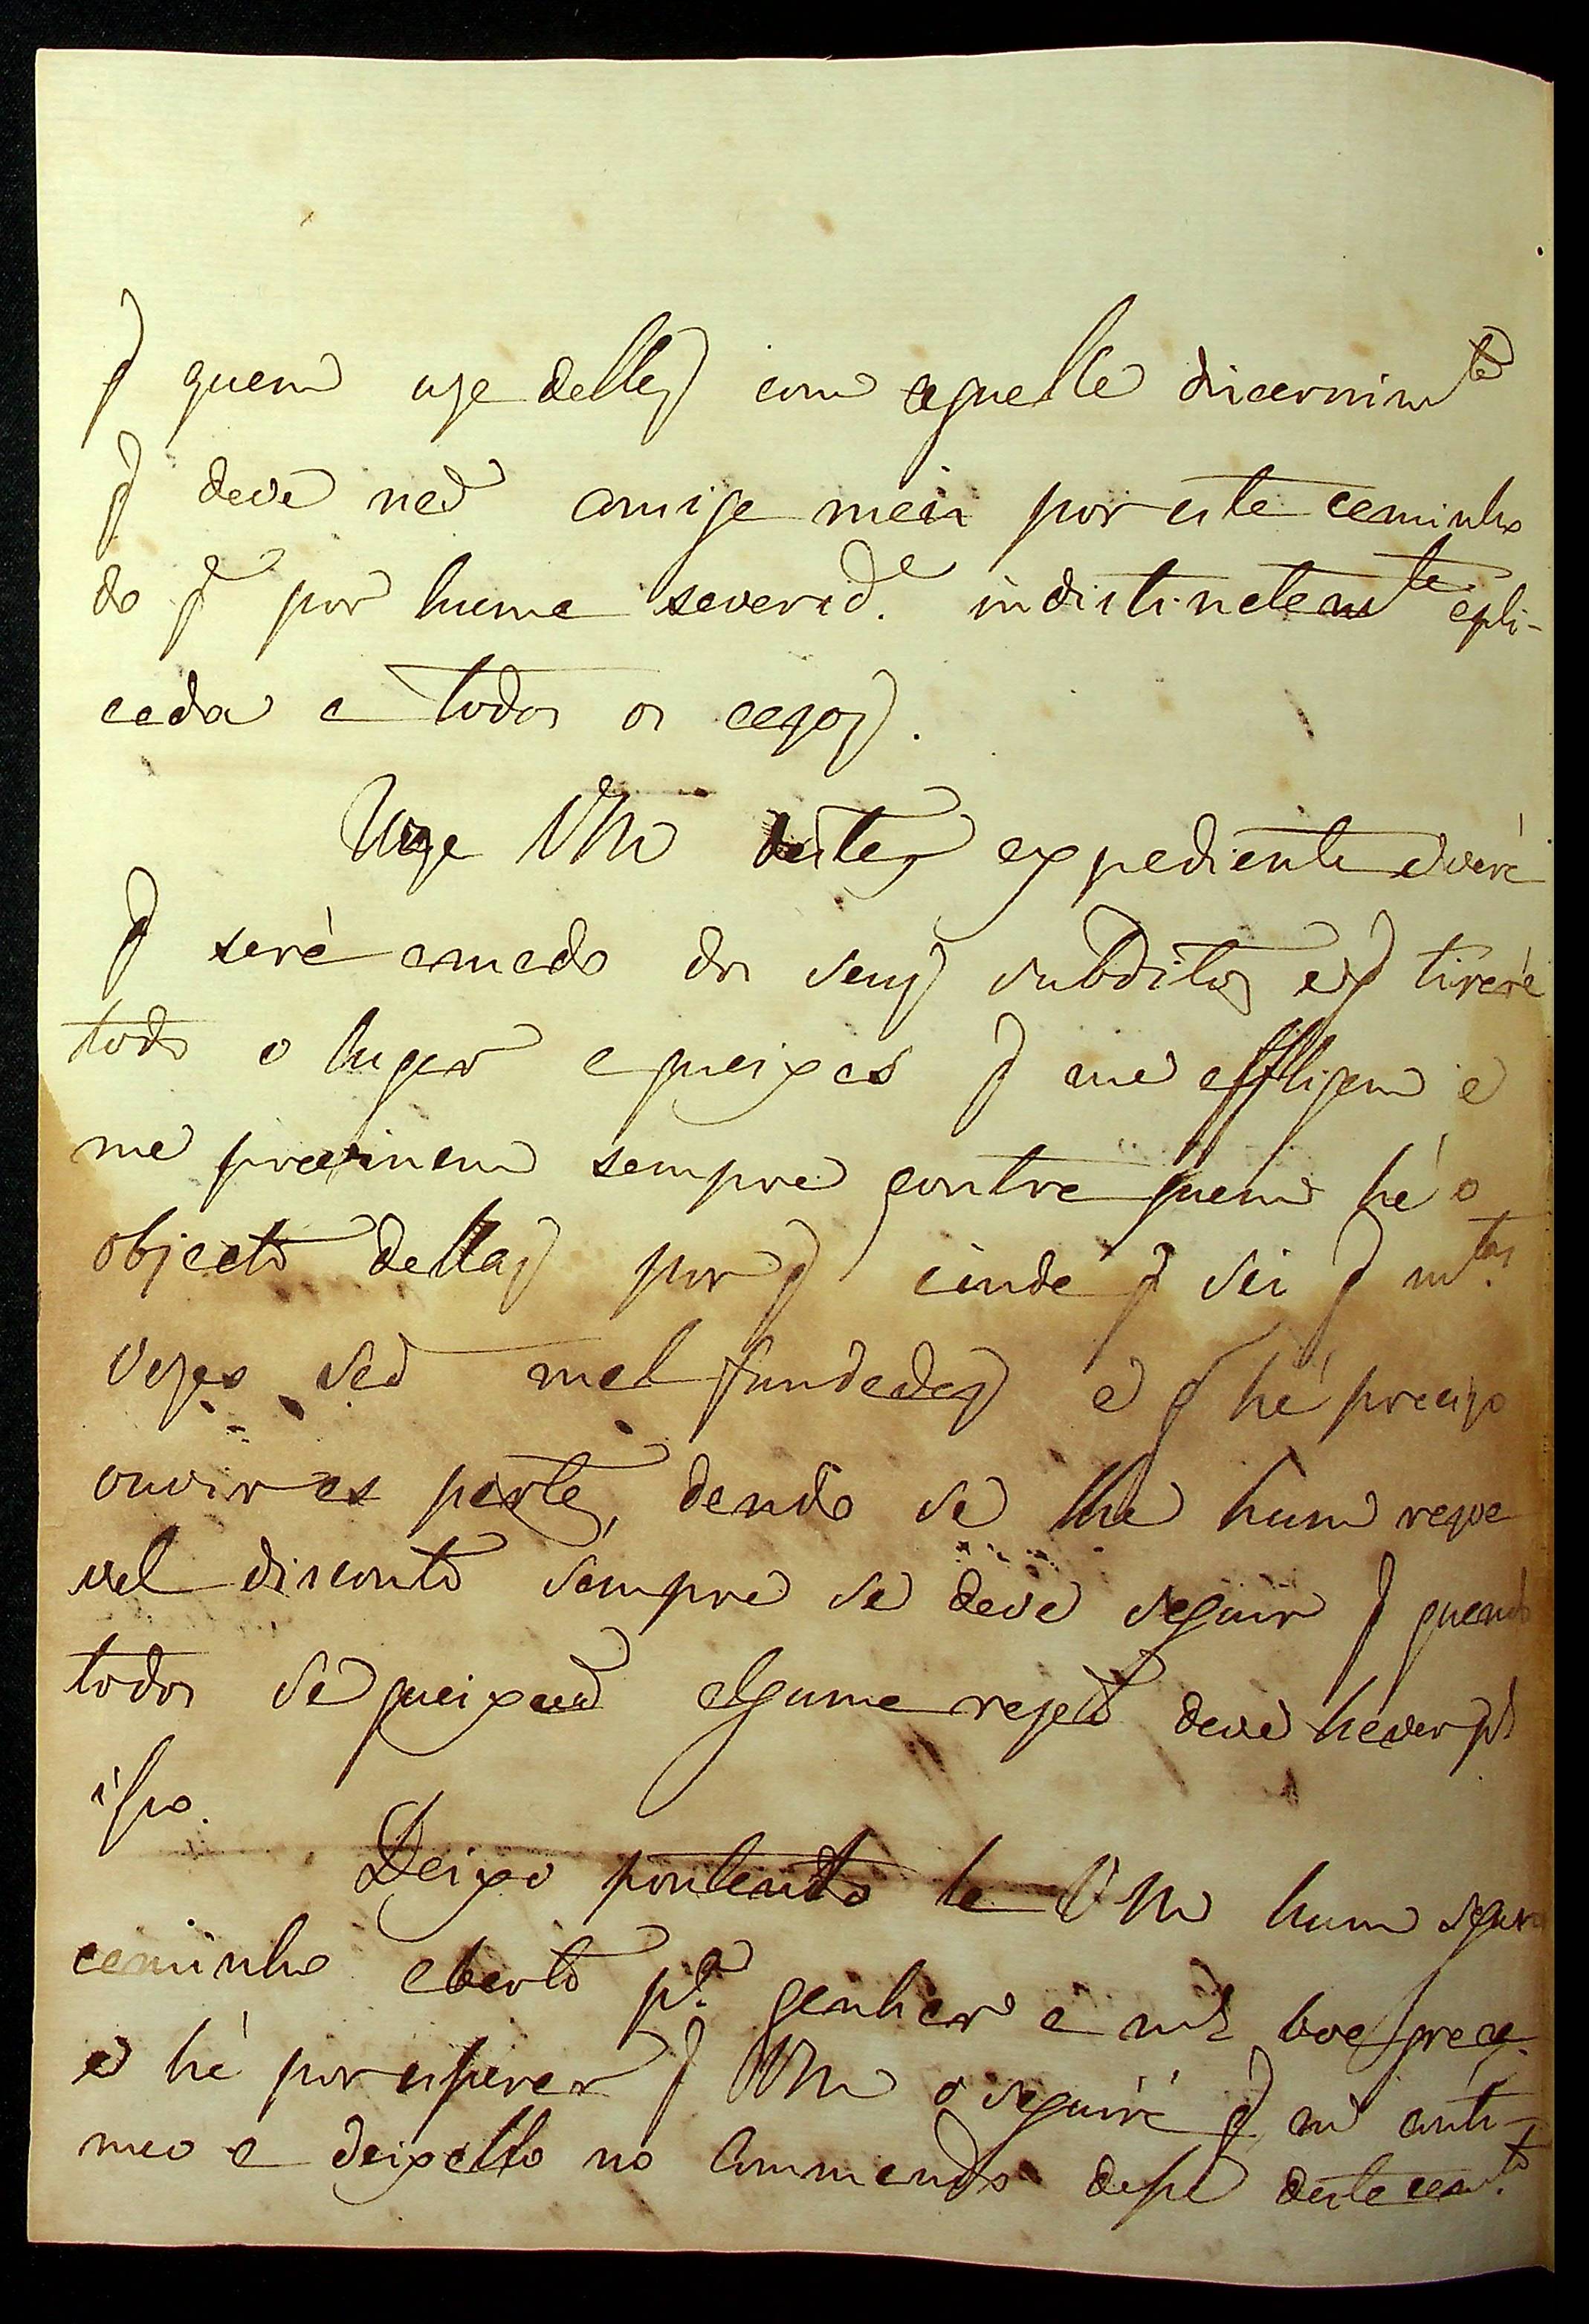 q̃ quem uze dellez com aquelle dicernim^to
q̃ deve naõ consige mais por este caminho
do q̃ por huma severid.^e indistinctam^te apli-
cada a todos os cazos.
Uze VM destes expedientes verá
q̃ será amado dos seus subditos e q̃ tirará
todo o lugar a queixas q̃ me affligem e
me previnem sempre contra quem hé o
objecto dellas por q̃ ainda q̃ sei q̃ m^tas
vezes saõ mal fundadas e q̃ hé precizo
ouvir as partes, dando se lhe hum rezoa
vel disconto sempre se deve seguir q̃ quando
todos se queixaõ alguma rezaõ deve haver p^a
isso.
Deixo portanto a VM hum seguro
caminho aberto p.^a ganhar a m^a boa graça
e hé por esperar q̃ VM o seguirá q̃ o
meo e deixallo no Commando desse destacam.^to